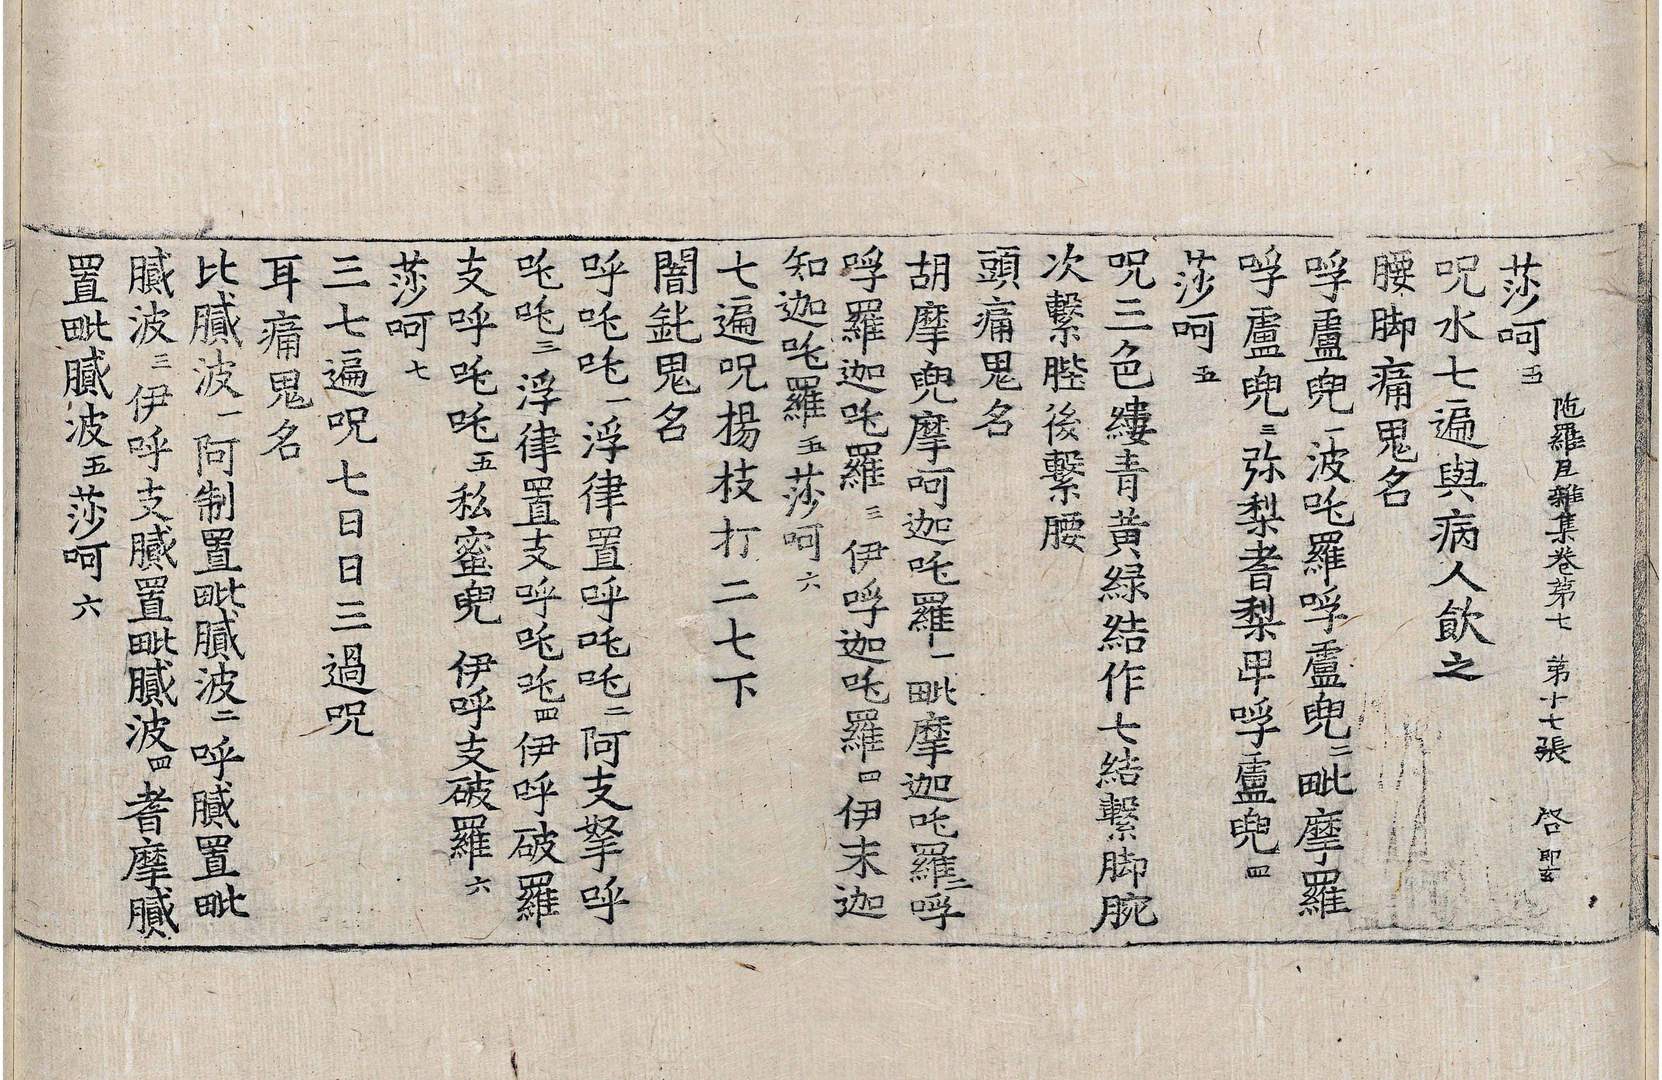 陁羅尼雜集卷第七 第十七張 啓聖
莎呵五
呪水七遍與病人飮之
腰脚痛鬼名
呼盧兜一波吒羅呼盧兜二毗摩羅
呼盧兜三弥梨耆梨毘呼盧兜四
莎呵五
呪三色縷青黃緑結作七結繫脚腕
次繫䏶後繫腰
頭痛鬼名
胡摩兜摩呵迦吒羅一毗摩迦吒羅二呼
呼羅迦吒羅三伊呼迦吒羅四伊末迦
知迦吒羅五莎呵六
七遍呪楊枝打二七下
闇鈋鬼名
呼吒吒一浮律置呼吒吒二阿支拏呼
吒吒三浮律置支呼吒吒四伊呼破羅
支呼吒吒五私蜜兜 伊呼支破羅六
莎呵七
三七遍呪七日日三過呪
耳痛鬼名
比膩波一阿制置毗膩波二呼膩置毗
膩波三伊呼支膩置毗膩波四耆摩膩
置毗膩波五莎呵六